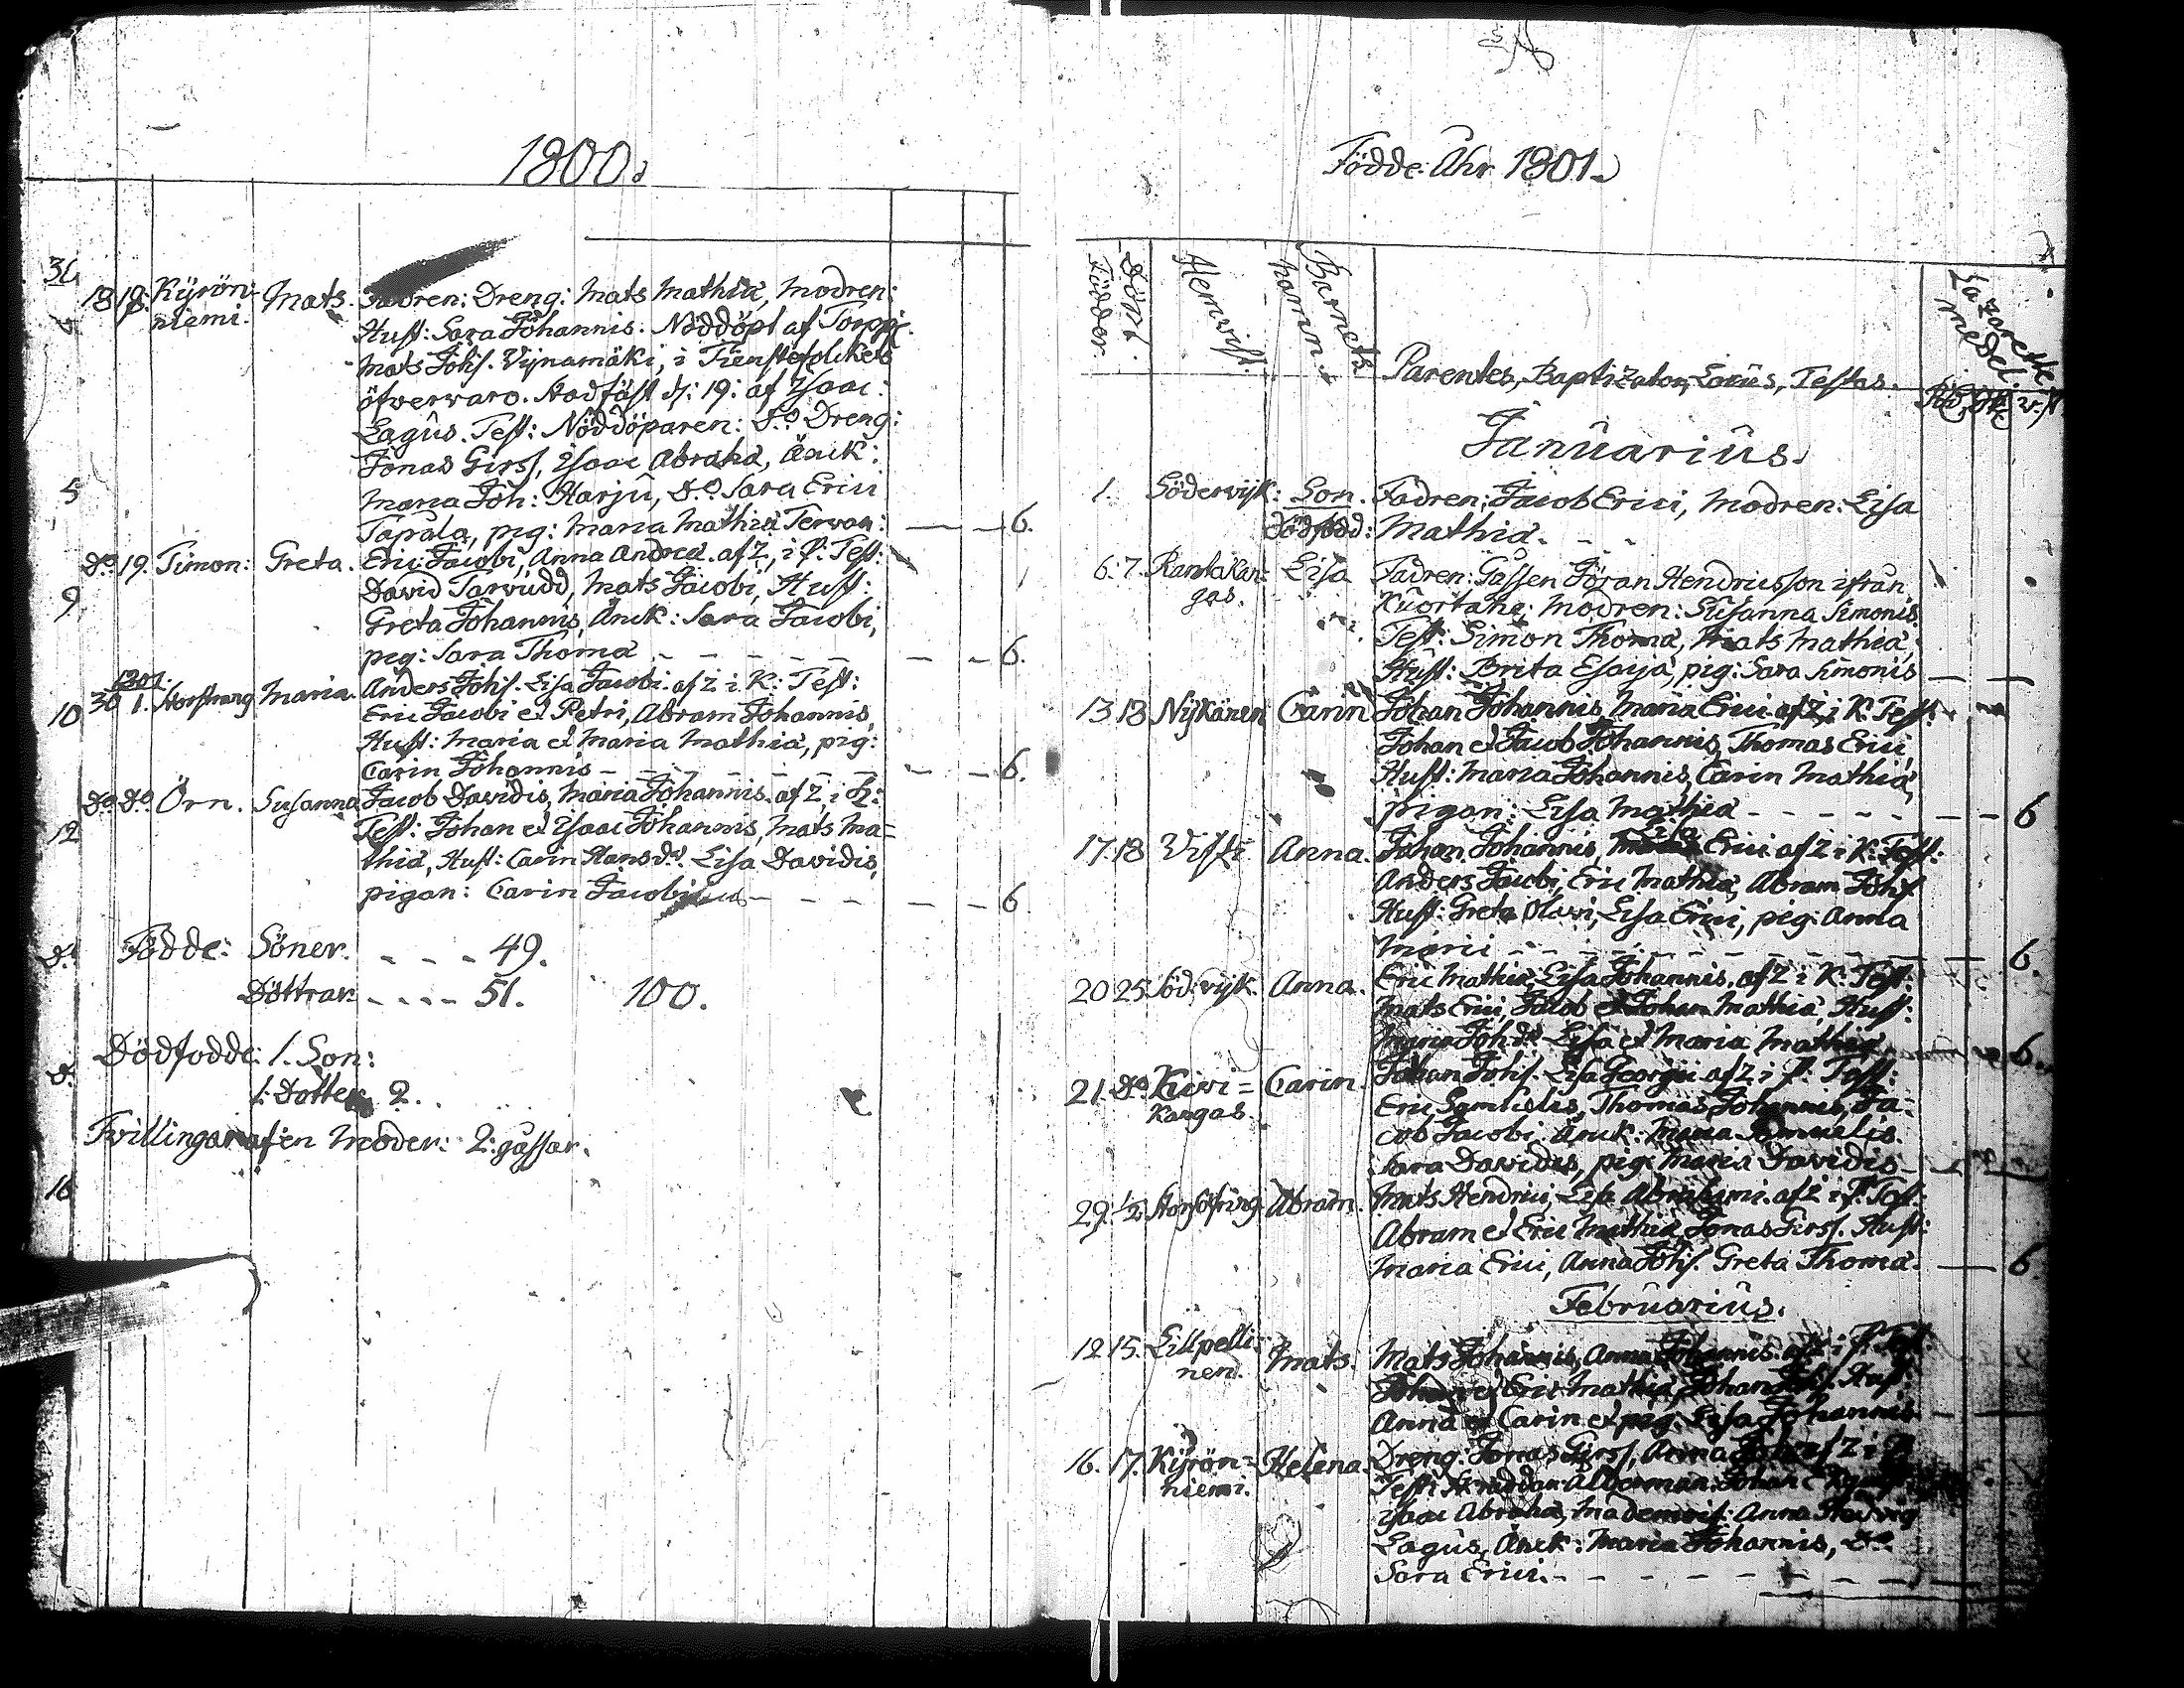 1800.
18 18. Kÿrön- Mats. Fadren: Dreng: Mats Mathiæ, Modren:
niemi. Hust: Sara Johannis. Nöddöpt af Torpp:
Mats Johs. Vijnamäki, i Tienstefolckets
öfverwaro. Stadfäst d: 19: af Isaac:
Lagus. Test: Nöddöparen: D:o Dreng:
Jonas Girss, Isaac Abrahā, Änck:
Maria Joh: Harju, D:o Sara Erici
Tapala, pig: Maria Mathiæ Terwan: — — 6.
D:o 19. Timon: Greta. Eric Jacobi, Anna Andreæ. af Z, i P: Test:
David Tarvudd, Mats Jacobi, Hust:
Greta Johannis, Änck: Sara Jacobi,
pig: Sara Thomæ - - - - - — — 6.
1801.
30 1. Storstrang Maria. Anders Johs. Lisa Jacobi. af Z i K: Test:
Eric Jacobi et Petri, Abram Johannis,
Hust: Maria et Maria Mathiæ, pig:
Carin Johannis - - - - - — — 6.
D:o D:o Örn. Susanna Jacob Davidis, Maria Johannis. af Z i K:
Test: Johan et Isaac Johannis, Mats Ma=
thiæ, Hust: Carin Hansd:r Lisa Davidis,
pigan: Carin Jacobi - - — — 6
Födde: Söner. - - - 49.
Döttrar - - - - 51. 100.
Dödfödde: 1. Son:
1. Dotter 2.
Tvillingar af en Moder: 2: gåssar.
31
5
9
10
12
16
Födde Åhr 1801.
Födder Döpt. Hemvist. Barnets namn. Parentes, Baptizator, Locus, Testes. Lazaretts medel.
Januarius.
1. Södervijk: Son. Fadren: Jacob Erici, Modren: Lisa
Dödfödd: Mathiæ. - -
6. 7. Rantakan- Lisa Fadren: Gåssen Göran Hendricsson ifrån
gas. Kuortane: Modren: Susanna Simonis
Test: Simon Thomæ, Mats Mathiæ,
Hust: Brita Esaiæ, pig: Sara Simonis — —
13 18 Nykänen Carin Johan Johannis, Maria Erici af Z, i K. Test:
Johan et Jacob Johannis, Thomas Erici,
Hust: Maria Johannis, Carin Mathiæ,
pigan: Lisa Mathiæ - - - - — — 6
17. 18 Visti Anna. Johan Johannis, Lisa Erici af Z i K: Test:
Anders Jacobi, Eric Mathiæ, Abram Johs
Hust: Greta Olavi, Lisa Erici, pig: Anna
Marci - - - - - — 6.
20 25 Söd:vijk. Anna. Eric Mathiæ, Lisa Johannis. af Z i K: Test:
Mats Erici, Jacob et Johan Mathiæ, Hust:
Maria Joh:dr Lisa et Maria Mathiæ 6.
21. D:o Kiwi= Carin. Johan Johs. Lisa Georgii af Z i P: Test:
kangas. Eric Samuelis, Thomas Johannis, Ja-
cob Jacobi Änck: Maria Samuelis.
Sara Davidis, pig: Maria Davidis —
29. ½ Abram. Mats Hendrici, Lisa Abrahami. af Z i P. Test:
Abram et Eric Mathiæ, Jonas Girss. Hust:
Maria Erici, Anna Johs. Greta Thomæ. — 6.
Februarius.
12. 15. Lillpelti- Mats. Mats Johannis, Anna Johannis. af Z i P. Test:
nen. Johan et Eric Mathiæ, Johan Johs. Hust:
Anna et Carin et pig: Lisa Johannis. — —
16. 17. Kÿrön= Helena. Dreng: Jonas Girss, Anna Joh: af Z i P.
niemi. Test: Skraddar Ålderman: Johan
Isaac Abrahā, Mademois: Anna Hedvig
Lagus, Änck: Maria Johannis, D:o
Sara Erici. - - - - - -